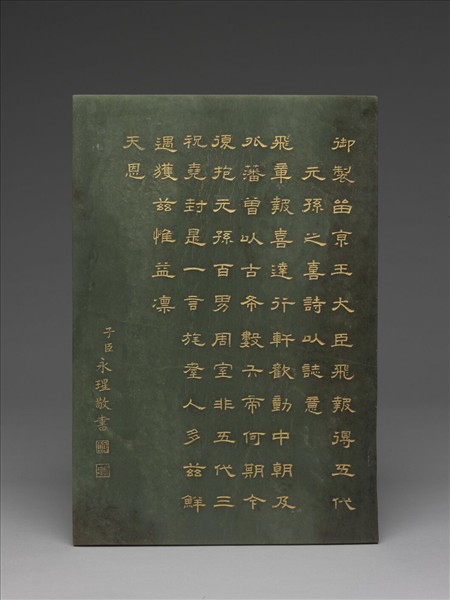 御製留京王大臣飛報得五代
元孫之喜詩以誌意
飛章報喜達行軒歡動中朝及
外藩曾以古希數六帝何期今
復抱元孫百男周室非五代三
祝堯封是一言旄耋人多兹鮮
遇獲兹惟益凛
天恩
子臣永瑆敬書